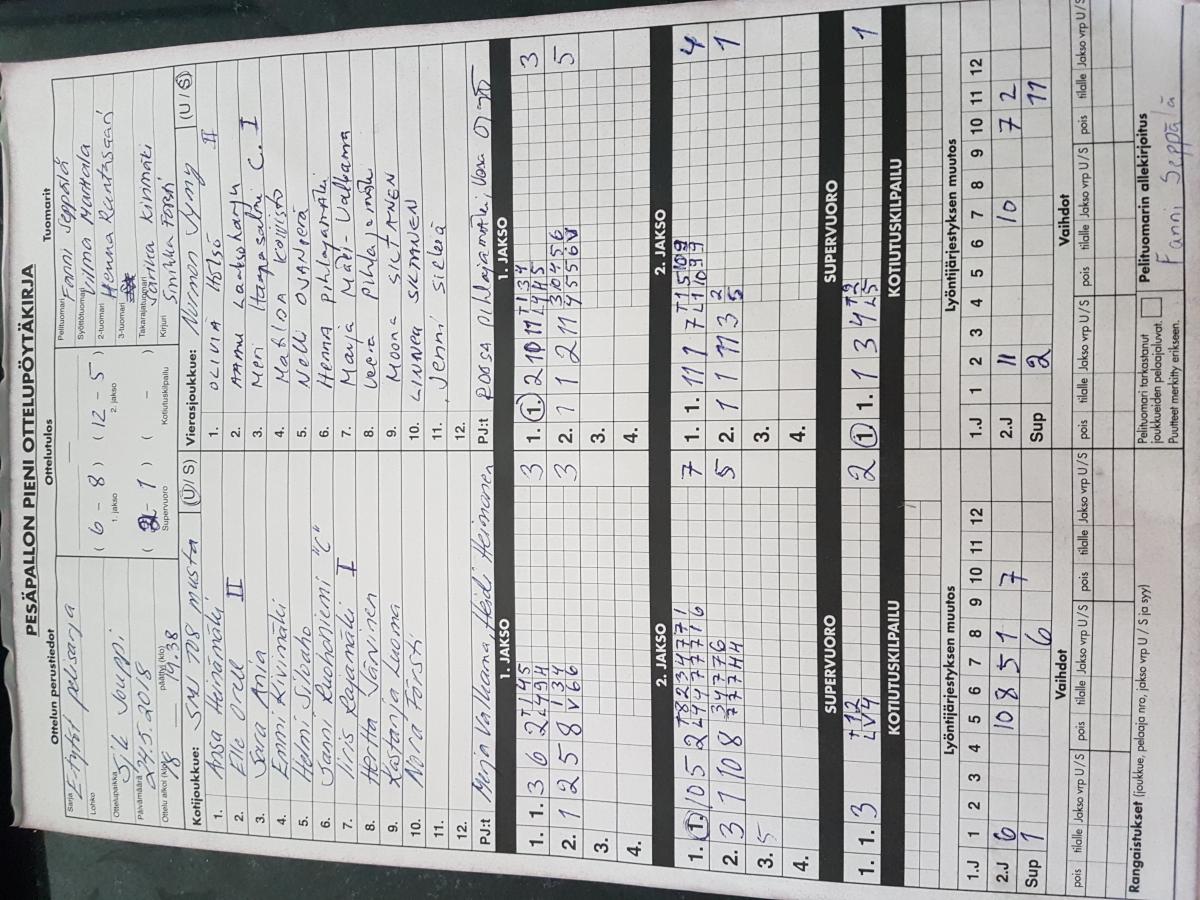 PESÄPALLON PIENI OTTELUPÖYTÄKIRJA
Ottelun perustiedot
Ottelutulos
Tuomarit
Sarja E-tytöt pelisarja
Lohko
Ottelupaikka SiK Jouppi
Päivämäärä 24.5.2018
Ottelu alkoi (klo) 18 päättyi (klo) 19.38
( 6 - 8 ) ( 12 - 5 )
1. jakso 2. jakso
( 2 - 1 ) ( - )
Supervuoro Kotiutuskilpailu
Pelituomari Fanni Seppälä
Syöttötuomari Vilma Mattala
2-tuomari Henna Rantasaari
3-tuomari
Takarajatuomari Jarkka Kinmäki
Kirjuri Sinikka Forsti
Kotijoukkue: SMJ J08 musta (U / S)
1. Ansa Heinämäki
2. Elle Orell II
3. Sara Ania
4. Emmi Kivimäki
5. Helmi Silvaho
6. Sanni Ruohoniemi "C"
7. Iiris Rajamäki I
8. Hertta Järvinen
9. Kastanja Luoma
10. Nora Forsti
11.
12.
PJ:t Merja Valkama, Heidi Heimonen
Vierasjoukkue: Nurmon Jymy (U / S)
1. OLIVIA Hötsö II
2. AAMU Laaksoharju
3. Meri Haapasalmi C. I
4. Matilda KOIVISTO
5. Nelli OJANPERÄ
6. Henna Pihlajamäki
7. Maija Mäki-Valkama
8. Veera Pihlajamäki
9. Moona SILTANEN
10. LINNEA SILTANEN
11. Jenni Sielkä
12.
PJ:t ROOSA Pihlajamäki, Vesa OJ
1. JAKSO
1. 1. 3 6 2 3
2. 1 2 5 8 3
3.
4.
1. JAKSO
1. 1. 2 10 11 3
2. 1 2 11 5
3.
4.
2. JAKSO
1. 1. 10 5 2 7
2. 3 1 10 8 5
3. 5
4.
2. JAKSO
1. 1. 11 1 7 4
2. 1 1 11 3 1
3.
4.
SUPERVUORO
1. 1. 3 2
SUPERVUORO
1. 1. 1 3 4 1
KOTIUTUSKILPAILU
KOTIUTUSKILPAILU
Lyöntijärjestyksen muutos
1.J 1 2 3 4 5 6 7 8 9 10 11 12
2.J 6 10 8 5 1 7
Sup 1 6
Lyöntijärjestyksen muutos
1.J 1 2 3 4 5 6 7 8 9 10 11 12
2.J 11 10 7 2
Sup 2 11
Vaihdot
pois tilalle Jakso vrp U / S pois tilalle Jakso vrp U / S pois tilalle Jakso vrp U / S
Vaihdot
pois tilalle Jakso vrp U / S pois tilalle Jakso vrp U / S pois tilalle Jakso vrp U / S
Rangaistukset (joukkue, pelaaja nro, jakso vrp U / S ja syy)
Pelituomari tarkastanut
joukkueiden pelaajaluvat.
Puutteet merkitty erikseen.
Pelituomarin allekirjoitus
Fanni Seppälä